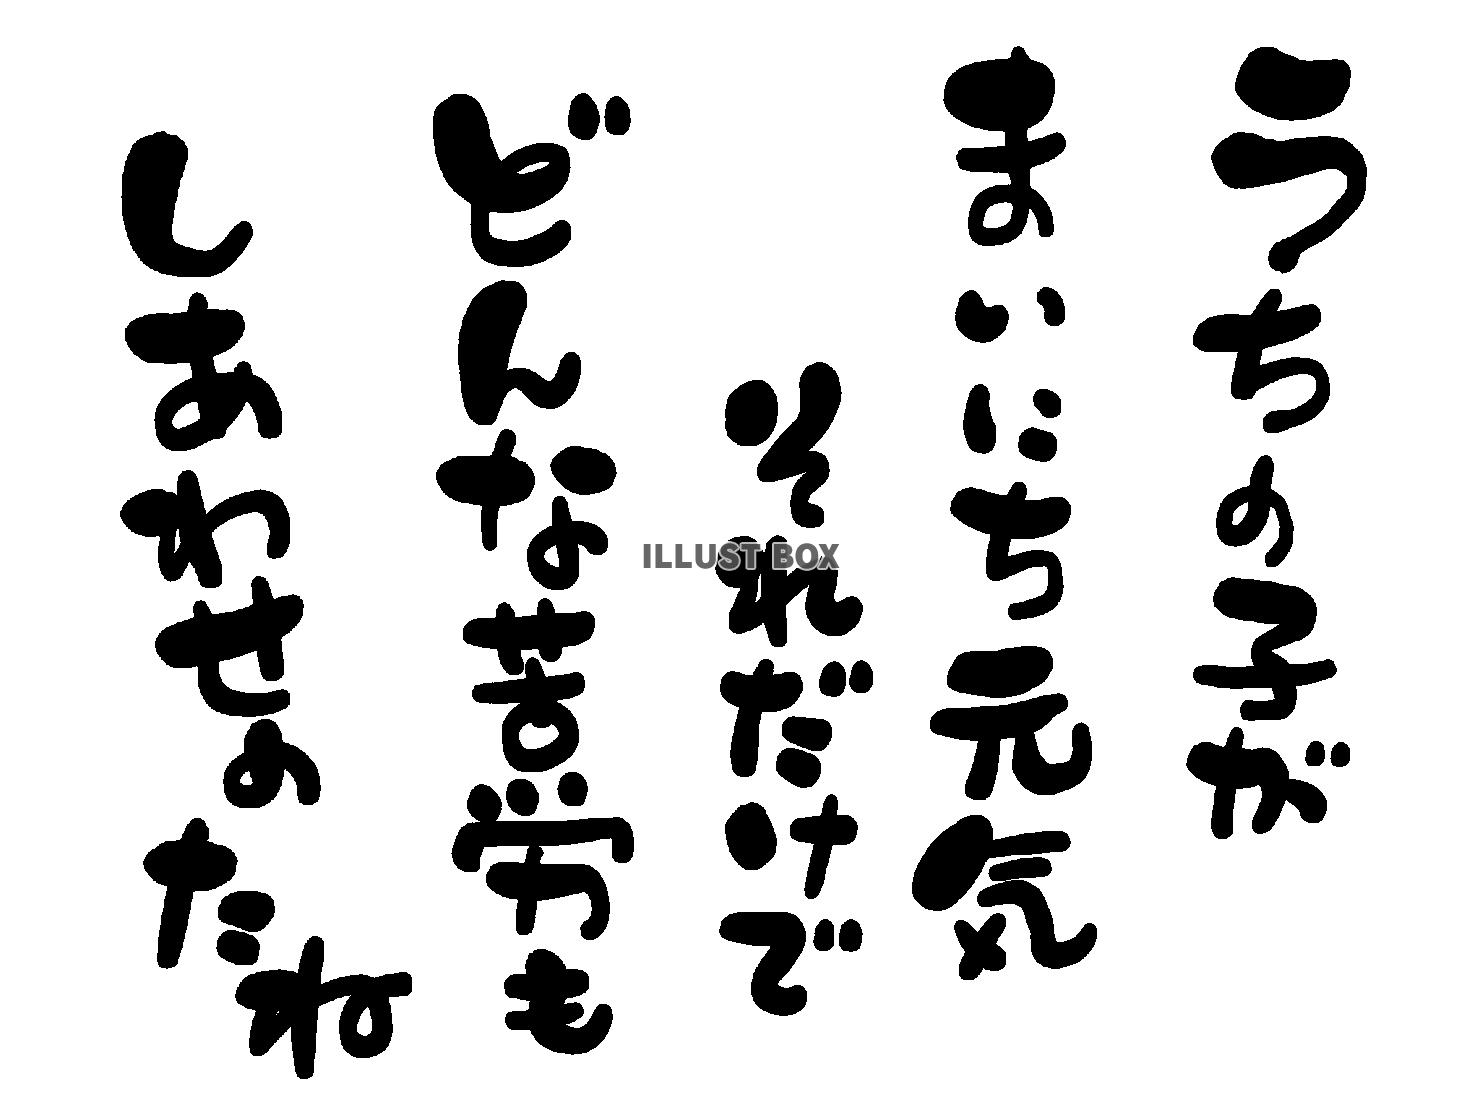 うちの子が
まいにち元気
それだけで
どんな苦労も
しあわせの
たね
ILLUST BOX